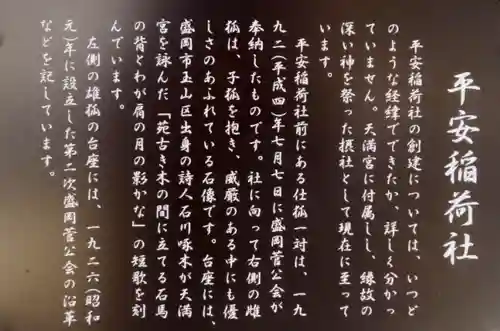 平安稲荷社
平安稲荷社の創建については、いつど
のような経緯でできたか、詳しく分かっ
ていません。天満宮に付属しし、縁故の
深い神を祭った摂社として現在に至って
います。
平安稲荷社前にある仕狐一対は、一九
九二(平成四)年七月七日に盛岡菅公会が
奉納したものです。社に向って右側の雌
狐は、子狐を抱き、威厳のある中にも優
しさのあふれている石像です。台座には、
盛岡市玉山区出身の詩人石川啄木が天満
宮を詠んだ「苑古き木の間に立てる石馬
の背とわが肩の月の影かな」の短歌を刻
んでいます。
左側の雄狐の台座には、一九二六(昭和
元)年に設立した第二次盛岡菅公会の沿革
などを記しています。